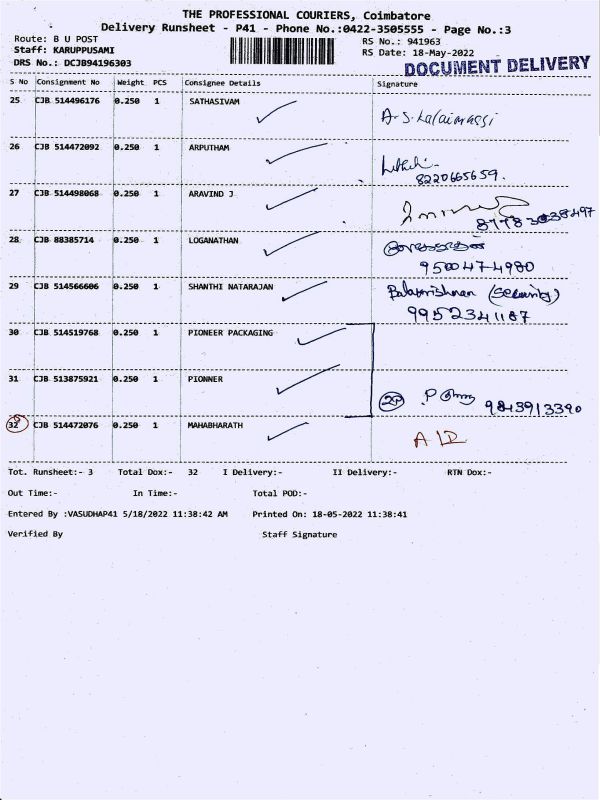 THE PROFESSIONAL COURIERS, Coimbatore
Delivery Runsheet - P41 - Phone No.:0422-3505555 - Page No.:3
Route: B U POST
RS No.: 941963
Staff: KARUPPUSAMI
RS Date: 18-May-2022
DRS No.: DCJB94196303
DOCUMENT DELIVERY
S No Consignment No Weight PCS Consignee Details Signature
25 CJB 514496176 0.250 1 SATHASIVAM
26 CJB 514472092 0.250 1 ARPUTHAM
8220665659.
27 CJB 514498068 0.250 1 ARAVIND J
28 CJB 88385714 0.250 1 LOGANATHAN
9500474980
29 CJB 514566606 0.250 1 SHANTHI NATARAJAN Balakrishnan (Security)
9952341187
30 CJB 514519768 0.250 1 PIONEER PACKAGING
31 CJB 513875921 0.250 1 PIONNER
9843913390
32 CJB 514472076 0.250 1 MAHABHARATH
Tot. Runsheet:- 3 Total Dox:- 32 I Delivery:- II Delivery:- RTN Dox:-
Out Time:- In Time:- Total POD:-
Entered By :VASUDHAP41 5/18/2022 11:38:42 AM Printed On: 18-05-2022 11:38:41
Verified By Staff Signature